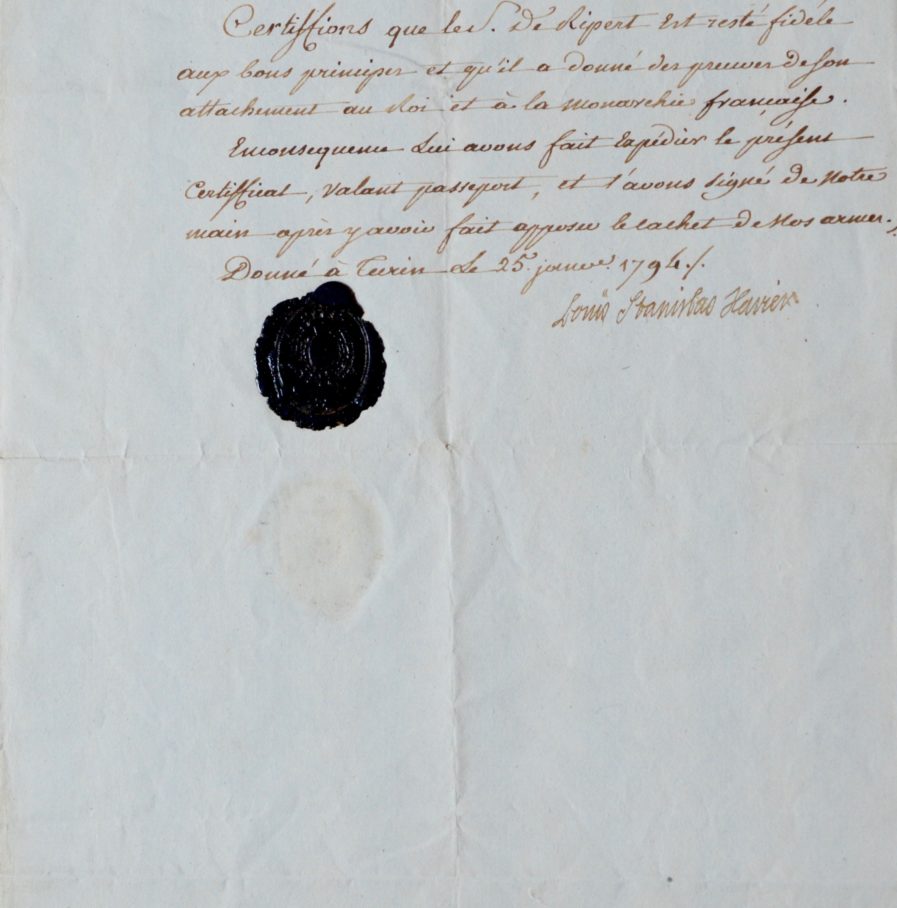 Certiffions que le S. De Ripert Est resté fidéle
aux bons principes et qu'il a donné des preuves de son
attachement au Roi et à la monarchie française.
Enconsequence Lui avons fait Expédier le présent
Certifficat, valant passeport, et l'avons signé de Notre
main après y avoir fait apposer le cachet de Nos armes.
Donné à Turin Le 25. janv.er 1794./.
Louis Stanislas Xavier